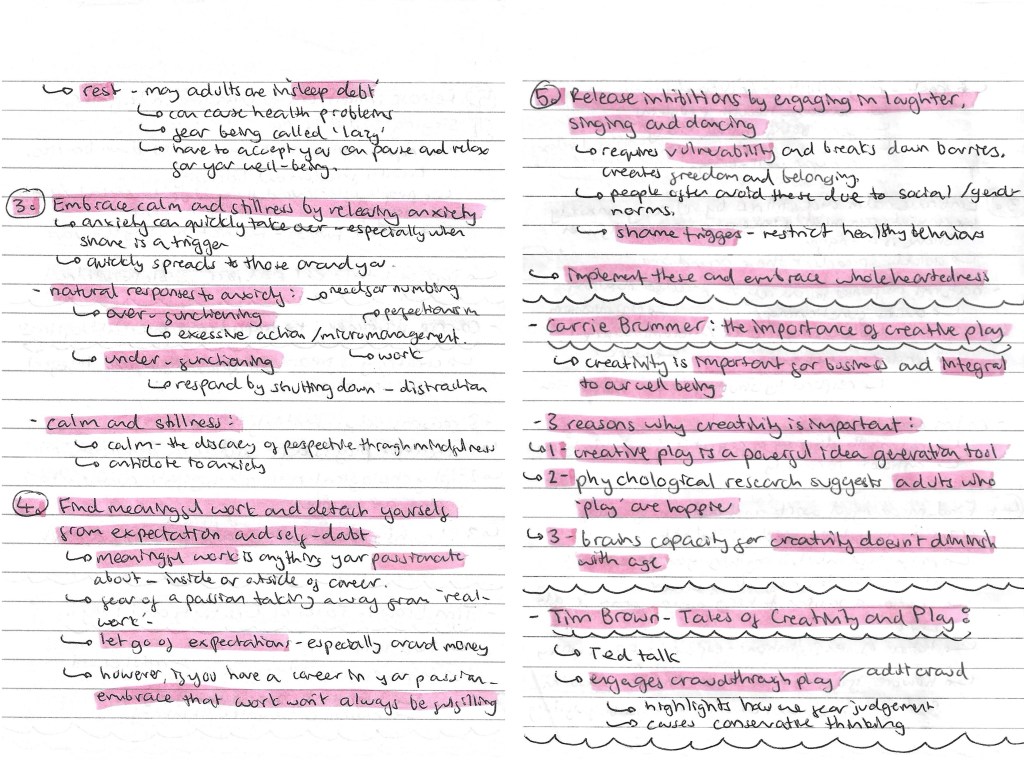 ↳ rest - may adults are in 'sleep debt'
↳ can cause health problems
↳ fear being called 'lazy'
↳ have to accept you can pause and relax
for your well-being.
3. Embrace calm and stillness by releasing anxiety
↳ anxiety can quickly take over - especially when
shame is a trigger
↳ quickly spreads to those around you.
- natural responses to anxiety: ↳ needs for numbing
↳ over-functioning ↳ perfectionism
↳ excessive action / micromanagement.
↳ under-functioning ↳ work
↳ respond by shutting down - distraction
- calm and stillness:
↳ calm - the discovery of perspective through mindfulness
↳ antidote to anxiety
4. Find meaningful work and detach yourself
from expectation and self-doubt
↳ meaningful work is anything your passionate
about - inside or outside of career.
↳ fear of a passion taking away from 'real-
work'-
↳ let go of expectations - especially around money
↳ however, if you have a career in your passion -
embrace that work won't always be fulfilling
5. Release inhibitions by engaging in laughter,
singing and dancing
↳ requires vulnerability and breaks down barriers.
creates freedom and belonging.
↳ people often avoid these due to social / gender
norms.
↳ shame triggers - restrict healthy behaviours
↳ implement these and embrace wholeheartedness
- Carrie Brummer: the importance of creative play
↳ creativity is important for business and integral
to our well being
- 3 reasons why creativity is important:
↳ 1 - creative play is a powerful idea generation tool
↳ 2 - phychological research suggests adults who
'play' are happier
↳ 3 - brains capacity for creativity doesn't diminish
with age
- Tim Brown - Tales of Creativity and Play:
↳ Ted talk
↳ engages crowd through play / adult crowd
↳ highlights how we fear judgement
↳ causes conservative thinking